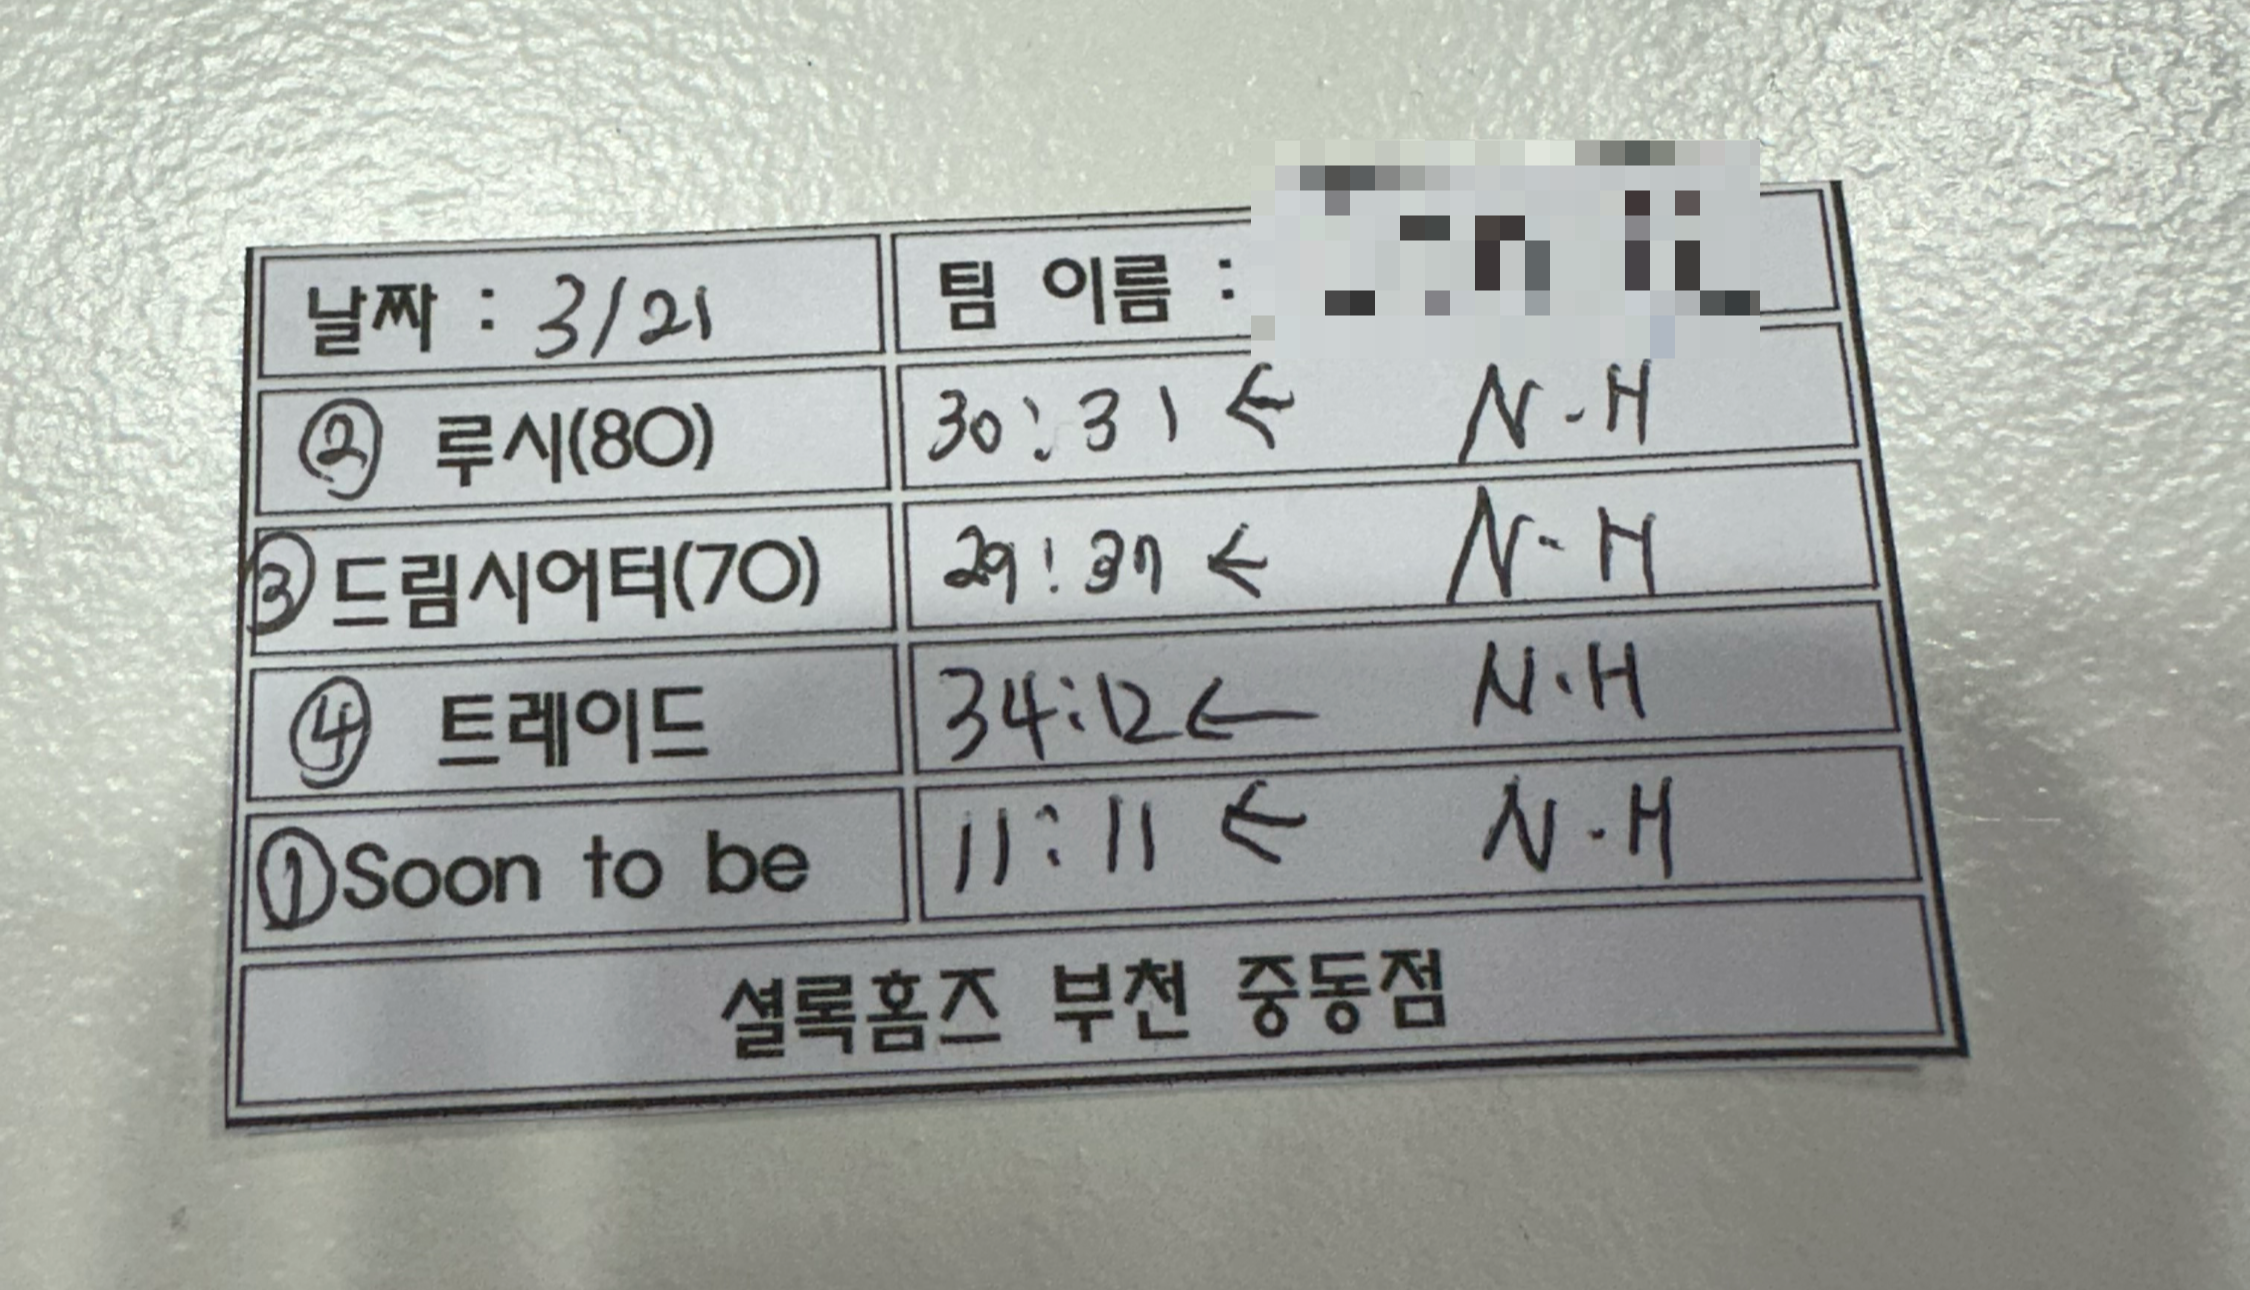 날짜 : 3/21 팀 이름 :
② 루시(80) 30:31 ← N.H
③ 드림시어터(70) 29:37 ← N.H
④ 트레이드 34:12 ← N.H
① Soon to be 11:11 ← N.H
셜록홈즈 부천 중동점